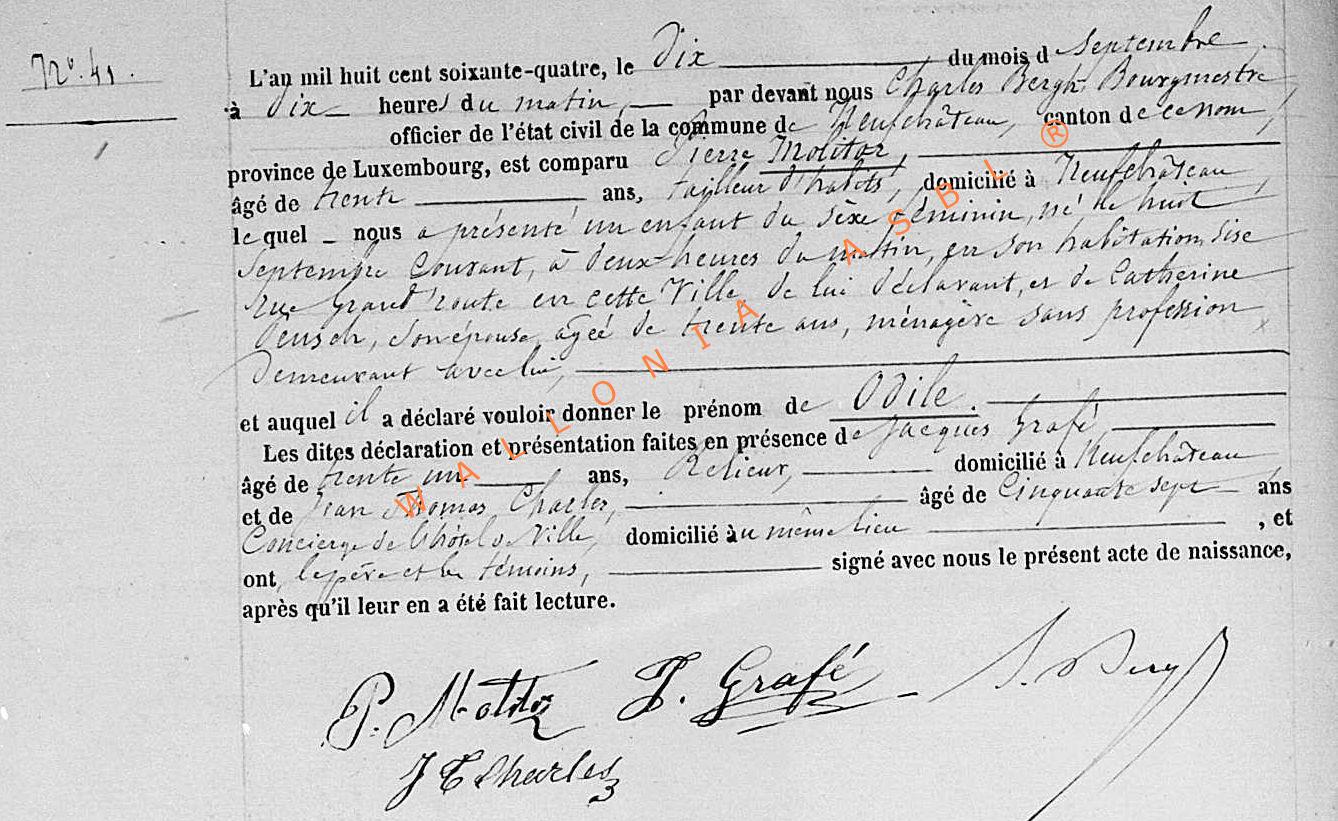 N°. 41.
L'an mil huit cent soixante-quatre, le Dix du mois d Septembre,
à Dix heures du matin, par devant nous Charles Bergh Bourgmestre
officier de l'état civil de la commune de Neufchâteau, canton de ce nom,
province de Luxembourg, est comparu Pierre Molitor,
âgé de trente ans, tailleur d'habits, domicilié à Neufchâteau,
le quel nous a présenté un enfant du sèxe féminin, né, le huit
Septembre Courant, à deux heures du matin, en son habitation, sise
rue Grand'route en cette Ville, de lui déclarant, et de Catherine
Deusch, son épouse, agée de trente ans, ménagère sans profession
Demeurant avec lui,
et auquel il a déclaré vouloir donner le prénom de Odile.
Les dites déclaration et présentation faites en présence de Jacques Grafé,
âgé de trente un ans, Relieur, domicilié à Neufchâteau
et de Jean Thomas Charles, âgé de Cinquante sept ans
Concierge de l'hôtel de Ville, domicilié àu même lieu , et
ont le père et les témoins, signé avec nous le présent acte de naissance,
après qu'il leur en a été fait lecture.
P. Molitor J. Grafé
J T Charles
WALLONIA ASBL ®